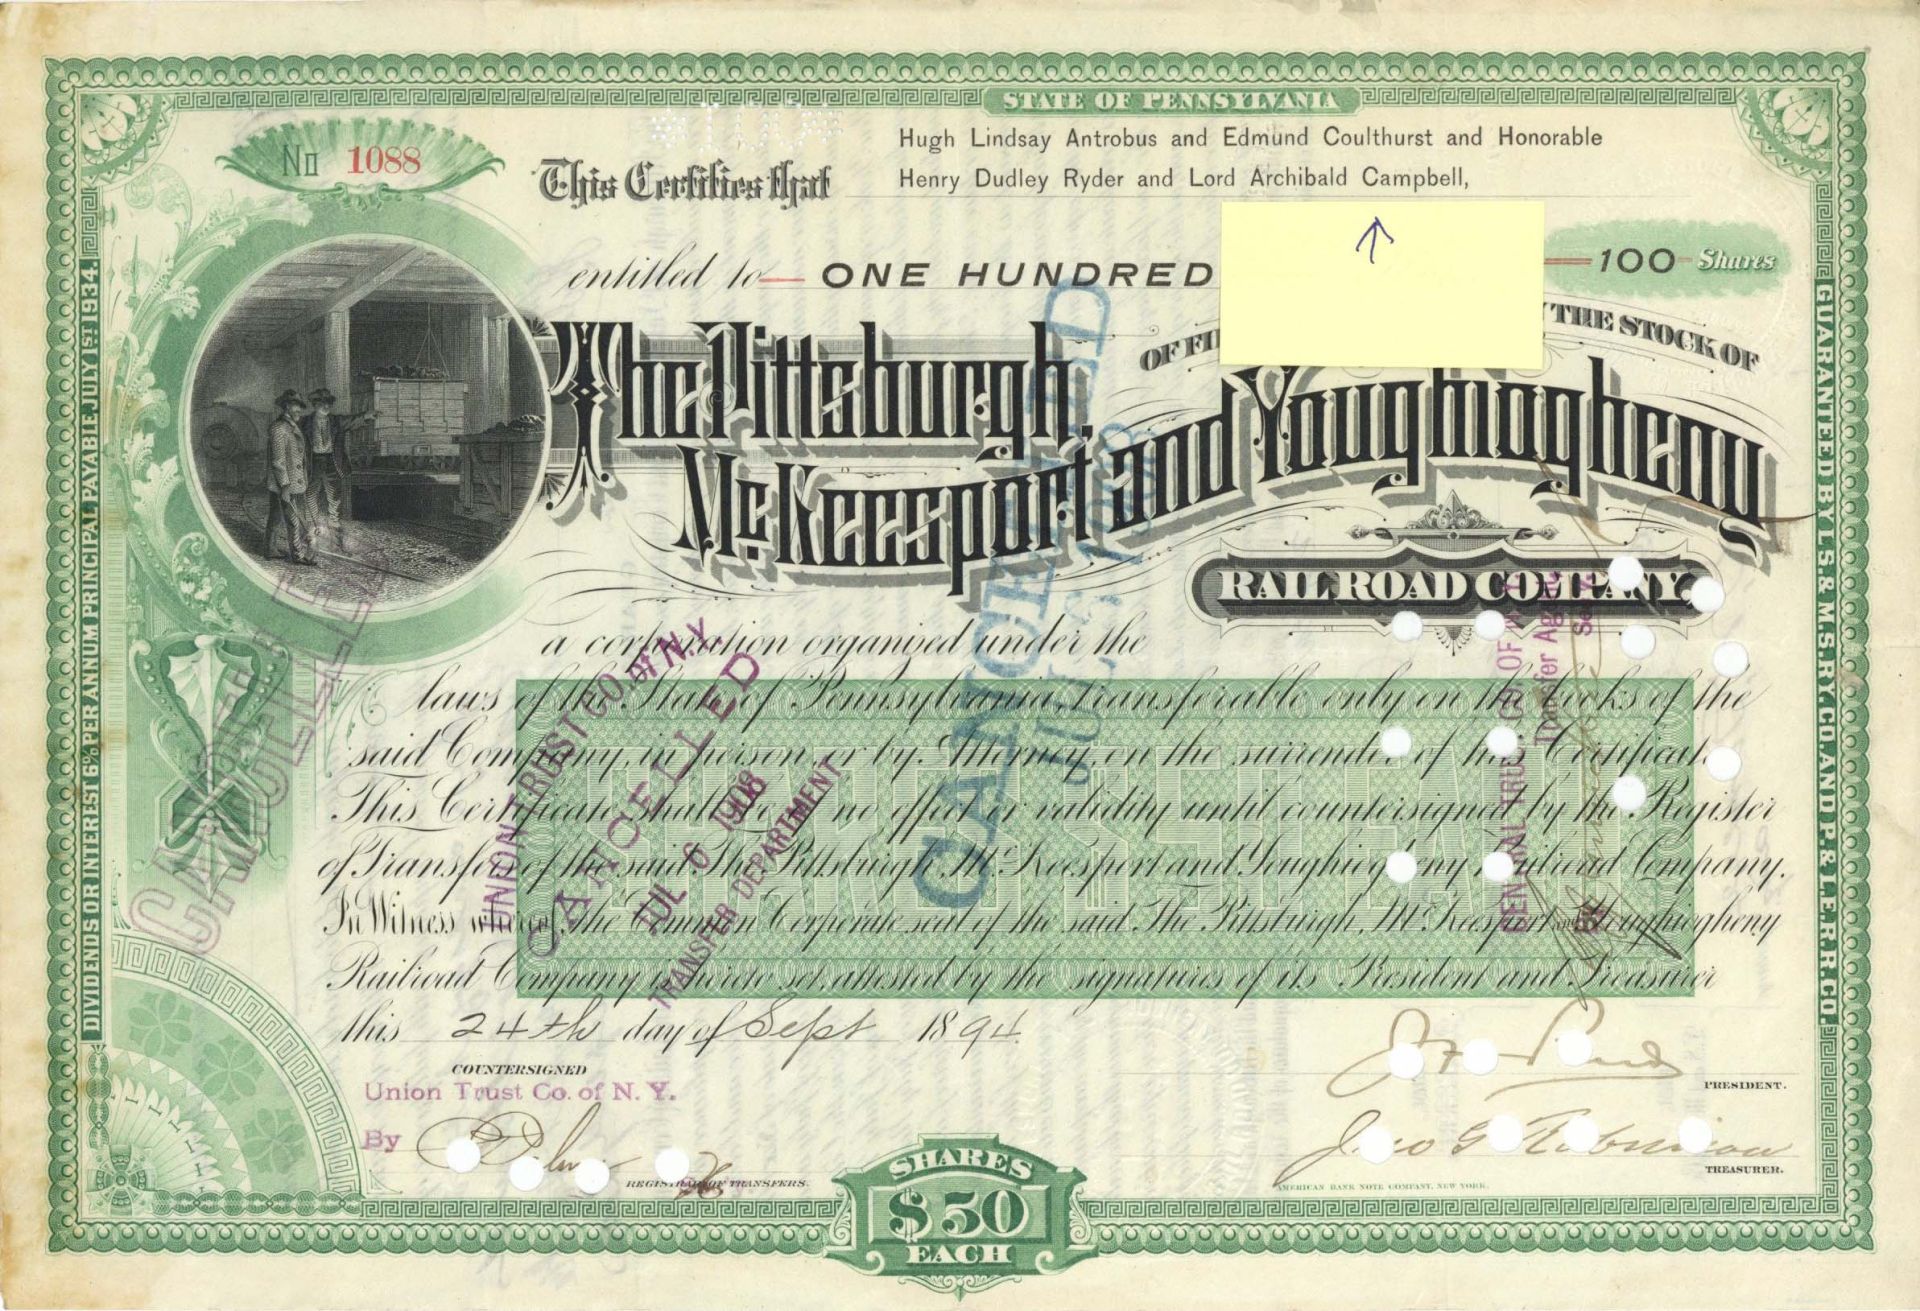 STATE OF PENNSYLVANIA
*100*
No 1088
This Certifies that
Hugh Lindsay Antrobus and Edmund Coulthurst and Honorable
Henry Dudley Ryder and Lord Archibald Campbell,
entitled to ONE HUNDRED 100 Shares
THE STOCK OF
The Pittsburgh,
McKeesport and Youghiogheny
RAIL ROAD COMPANY,
a corporation organised under the
laws of the State of Pennsylvania, transferable only on the books of the
said Company, in person or by Attorney, on the surrender of this Certificate
This Certificate shall be of no effect or validity until countersigned by the Register
of Transfers of the said The Pittsburgh, McKeesport and Youghiogheny Railroad Company.
In Witness whereof, the Common Corporate seal of the said The Pittsburgh, McKeesport and Youghiogheny
Railroad Company is hereto set, attested by the signatures of its President and Treasurer
this 24th day of Sept 1894
COUNTERSIGNED
Union Trust Co. of N. Y.
By
REGISTRAR OF TRANSFERS.
PRESIDENT.
Jno G Robinson
TREASURER.
AMERICAN BANK NOTE COMPANY, NEW YORK.
SHARES
$50
EACH
DIVIDENDS OR INTEREST 6% PER ANNUM PRINCIPAL PAYABLE, JULY 1ST 1934.
GUARANTEED BY L.S. & M.S. RY. CO. AND P. & L.E. R.R. CO.
SHARES $50 EACH
CANCELLED
UNION TRUST CO. OF N.Y.
CANCELLED
JUL 6 1908
TRANSFER DEPARTMENT
CANCELLED
JUL 6 1908
Transfer Agent